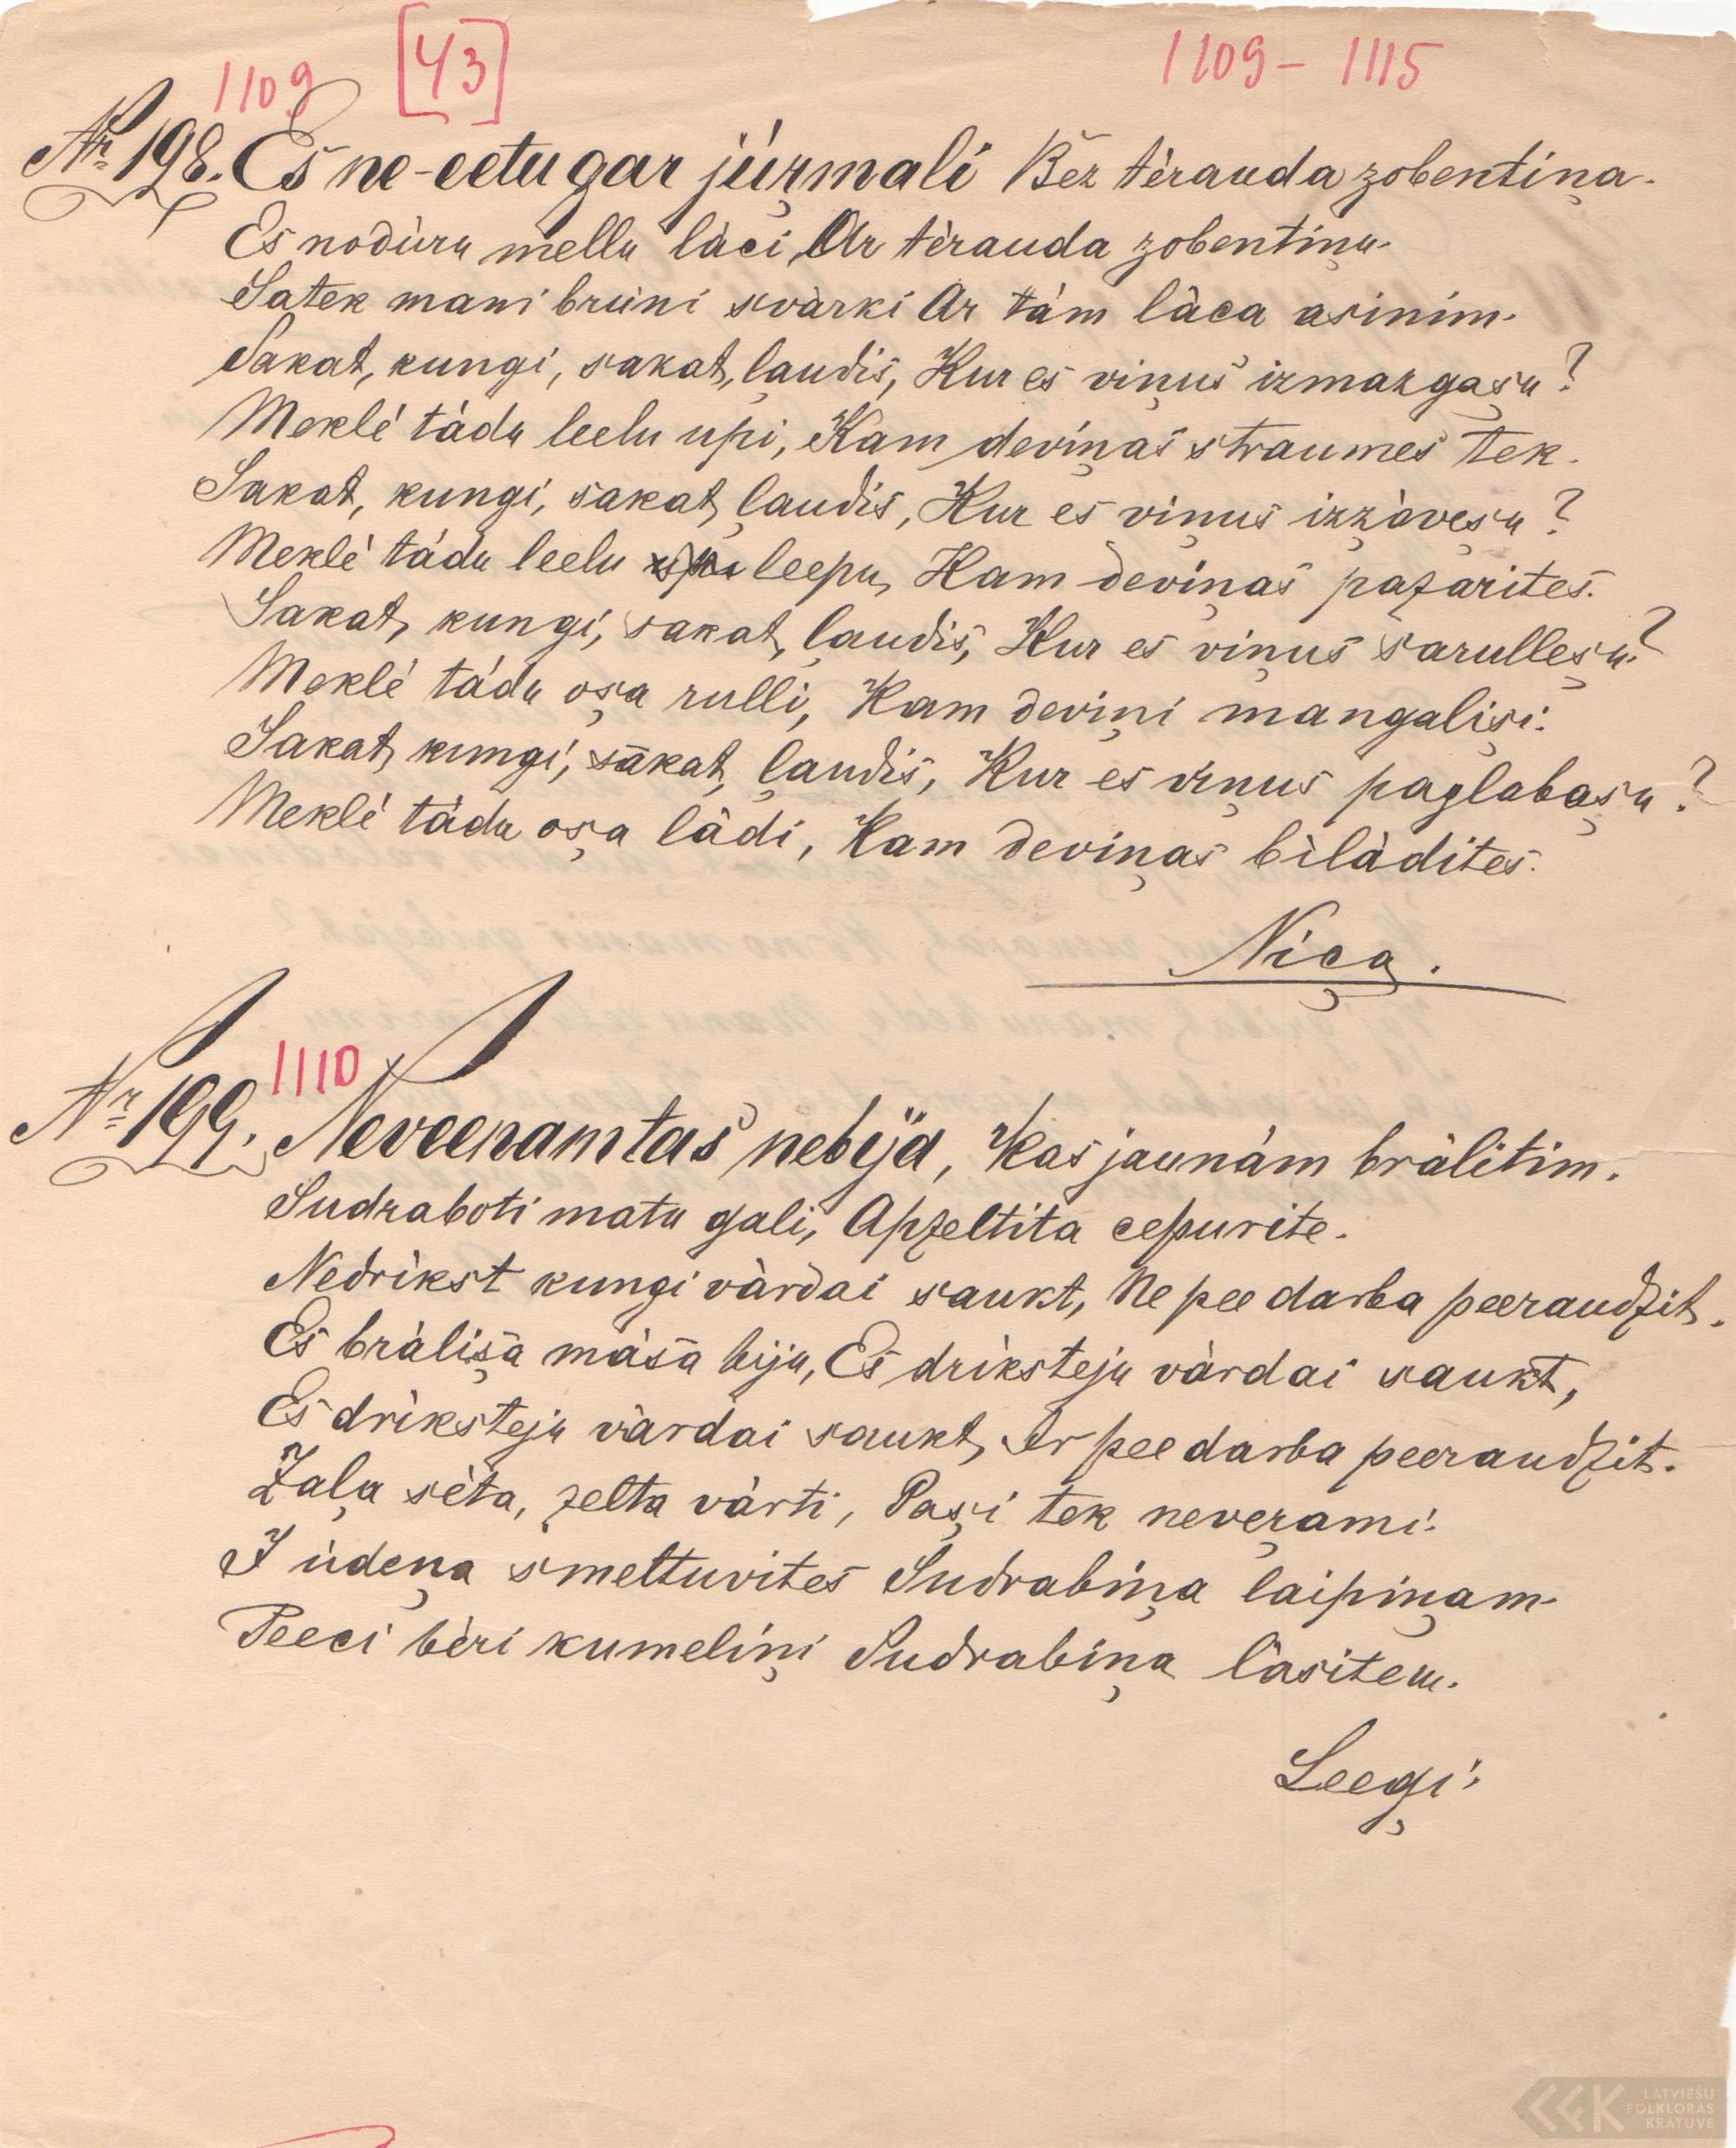 1109 [43] 1109 – 1115
Nr 198. Es ne-eetu gar júŗmali Bez tèrauda zobentiņa.
Es nodùru mellu làci, Ar tèrauda zobentiņu.
Satek mani brùni svàrki Ar tàm làca asinim.
Sakat, kungi, sakat, ļaudis, Kur es viņus izmazgaşu?
Meklè tàdu leelu upi, Kam deviņas straumes tek.
Sakat, kungi, sakat, ļaudis, Kur es viņus izz̧àveşu?
Meklè tàdu leelu leepu, Kam deviņas pazarites.
Sakat, kungi, sakat, ļaudis, Kur es viņus sarulleşu?
Meklè tàdu oşa rulli, Kam deviņi mangalişi.
Sakat, kungi, sakat, ļaudis, Kur es viņus paglabaşu?
Meklè tàdu oşa làdi, Kam deviņas bilàdites.
Niça.
1110
Nr 199. Neveenam tas nebija, Kas jaunàm bràlitim.
Sudraboti matu gali, Apzeltita cepurite.
Nedrìkst kungi vàrdai saukt, Ne pee darba peeraudzit.
Es bràlişa màsa biju, Es drìksteju vàrdai saukt,
Es drìksteju vàrdai saukt, Ar pee darba peeraudzit.
Zaļa sèta, zelta vàrti, Paşi tek neveŗami.
I ùdeņa smeltuvites Sudrabiņa laipiņam.
Peeci bèri kumeliņi Sudrabiņa làsitem.
Leeģi.
LATVIEŠU
FOLKLORAS
KRĀTUVE